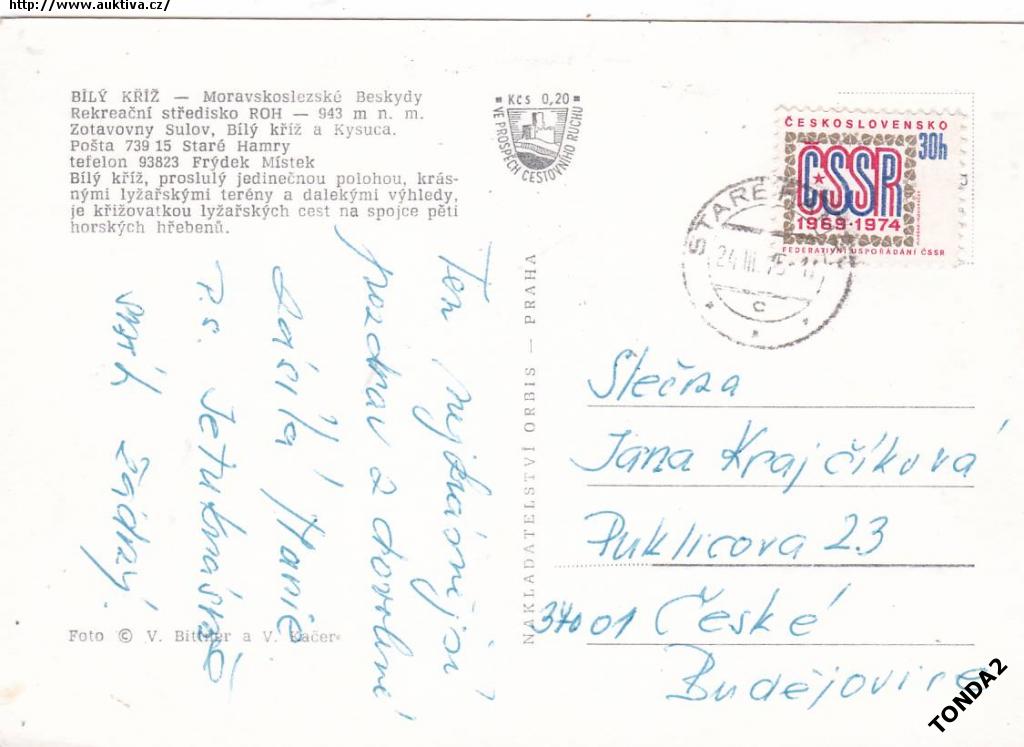 http://www.auktiva.cz/
BÍLÝ KŘÍŽ — Moravskoslezské Beskydy
Rekreační středisko ROH — 943 m n. m.
Zotavovny Sulov, Bílý kříž a Kysuca.
Pošta 739 15 Staré Hamry
tefelon 93823 Frýdek Místek
Bílý kříž, proslulý jedinečnou polohou, krás-
nými lyžařskými terény a dalekými výhledy,
je křižovatkou lyžařských cest na spojce pěti
horských hřebenů.
Kčs 0,20
VE PROSPĚCH CESTOVNÍHO RUCHU
ČESKOSLOVENSKO
30h
ČSSR
1969·1974
FEDERATIVNÍ USPOŘÁDÁNÍ ČSSR
STARÉ
24.III.75
C
Ten nejkrásnější
pozdrav z dovolené
zasílá Hanic
P.S. Je tu krásně
sníh žádný!
NAKLADATELSTVÍ ORBIS — PRAHA
Slečna
Jana Krajčíková
Puklicova 23
37001 České
Budějovice
Foto © V. Bittner a V. Kačer
TONDA2